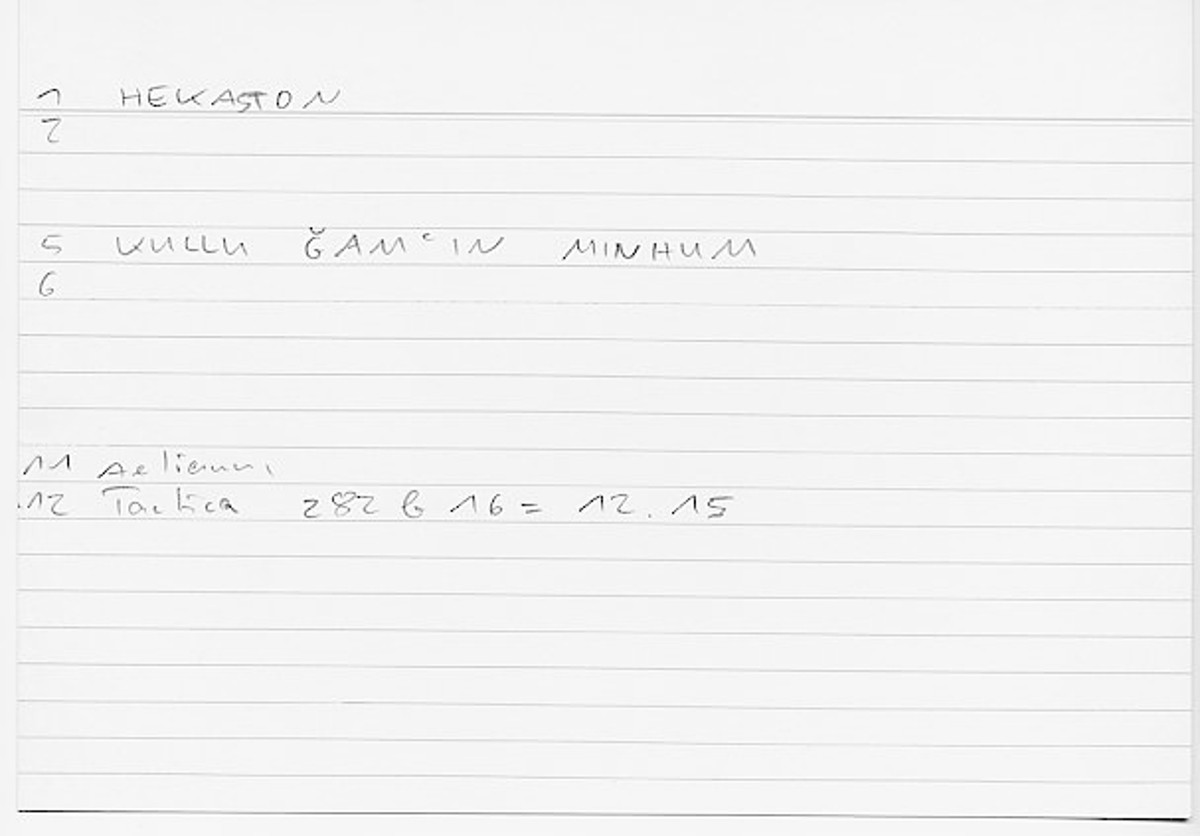 1 HEKASTON
2
5 KULLU ǦAMʿIN MINHUM
6
11 Aelianus
12 Tactica 282 b 16 = 12.15